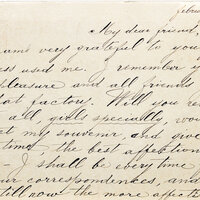 februa
My dear friend,
am very grateful to you
ess used me. remember i
pleasure and all friends
at factory. Will you re
all, girls specially, wo
et my souvenir and give
time the best affection
- I shall be every time
ur correspondences, and
till now the more affecti